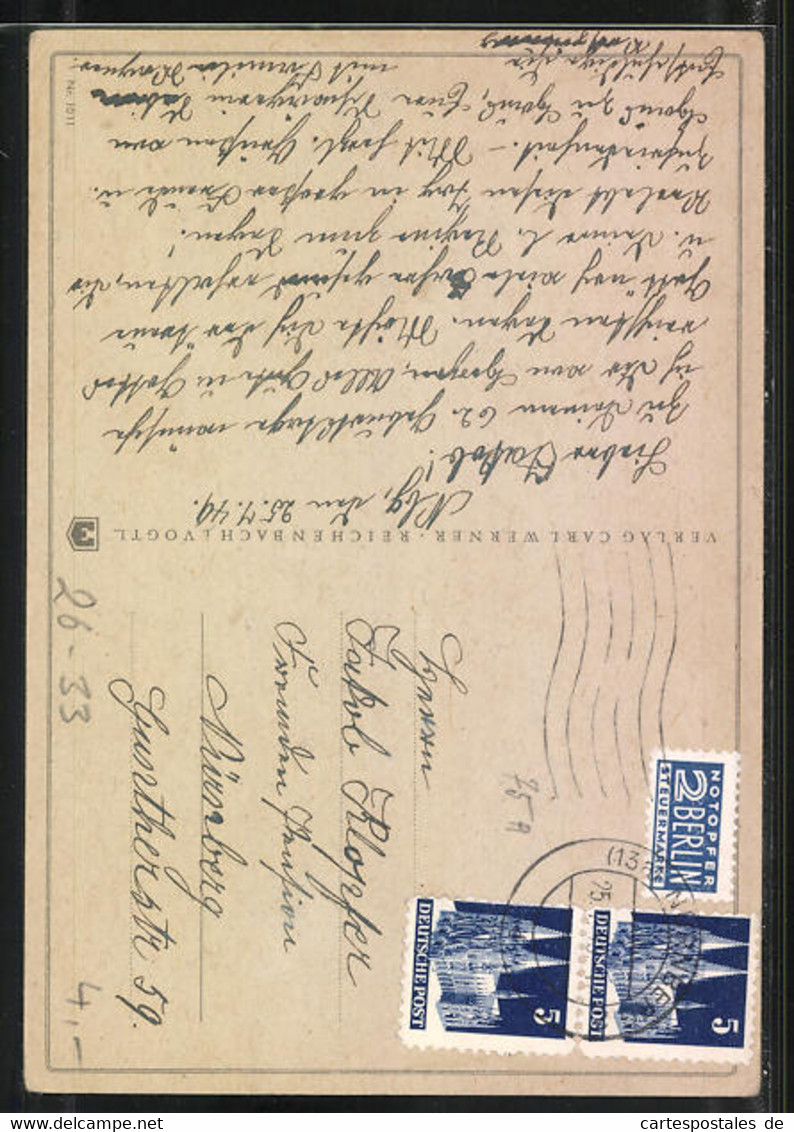 Nbg, den 25.7.49.
Lieber Jakob!
Zu Deinem 62. Geburtstage wünsche
ich Dir von Herzen, alles Gute u. Gottes
reichsten Segen. Möchte Dich der treue
Gott noch viele Jahre gesund erhalten, Dir
u. Deiner l. Regine zum Segen!
Verlebt diesen Tag in großer Freude u.
Zufriedenheit. – Mit herzl. Grüßen von
Haus zu Haus, Euer Schwager
mit Familie
Entschuldige die
Nr. 1011
VERLAG CARL WERNER · REICHENBACH I. VOGTL.
Herrn
Jakob Klopfer
Fremden Pension
Nürnberg
Guntherstr 59.
NOTOPFER
2 BERLIN
STEUERMARKE
5
DEUTSCHE POST
5
DEUTSCHE POST
26-33
4,-
cartespostales de